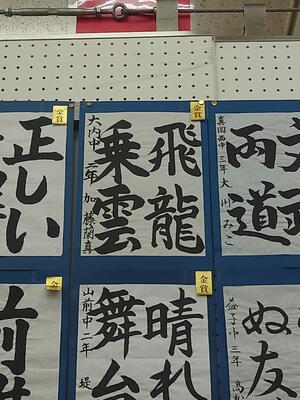 金賞
正しい
金賞
飛龍
乗雲
大内中 三年 加藤蘭真
両道
真岡西中 三年 大川みこ
金賞
晴れ
舞台
山前中一年 堤
ぬ友
益子中 三年